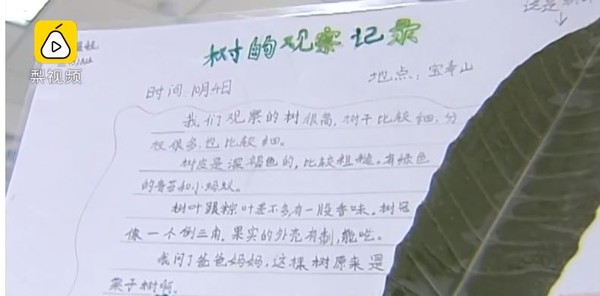 梨视频
树的观察记录
时间:10月4日
地点:宝寿山
我们观察的树很高,树干比较细,分
枝很多,也比较细。
树皮是深褐色的,比较粗糙。有绿色
的青苔和小蚂蚁。
树叶跟粽叶差不多有一股香味。树冠
像一个倒三角。果实的外壳有刺,能吃。
我问了爸爸妈妈,这棵树原来是
栗子树啊。